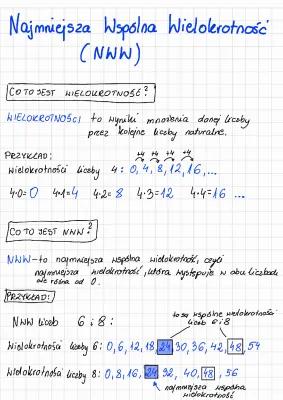 Najmniejsza Wspólna Wielokrotność
(NWW)
CO TO JEST WIELOKROTNOŚĆ?
WIELOKROTNOŚCI to wyniki mnożenia danej liczby
przez kolejne liczby naturalne.
PRZYKŁAD:
+4 +4 +4 +4
Wielokrotności liczby 4: 0, 4, 8, 12, 16, ...
4·0=0 4·1=4 4·2=8 4·3=12 4·4=16 ...
CO TO JEST NWW?
NWW - to najmniejsza wspólna wielokrotność, czyli
najmniejsza wielokrotność, która występuje w obu liczbach
ale różna od 0.
PRZYKŁAD:
NWW liczb 6 i 8:
to są wspólne wielokrotności
liczb 6 i 8
Wielokrotności liczby 6: 0, 6, 12, 18, 24, 30, 36, 42, 48, 54
Wielokrotności liczby 8: 0, 8, 16, 24, 32, 40, 48, 56
najmniejsza wspólna
wielokrotność